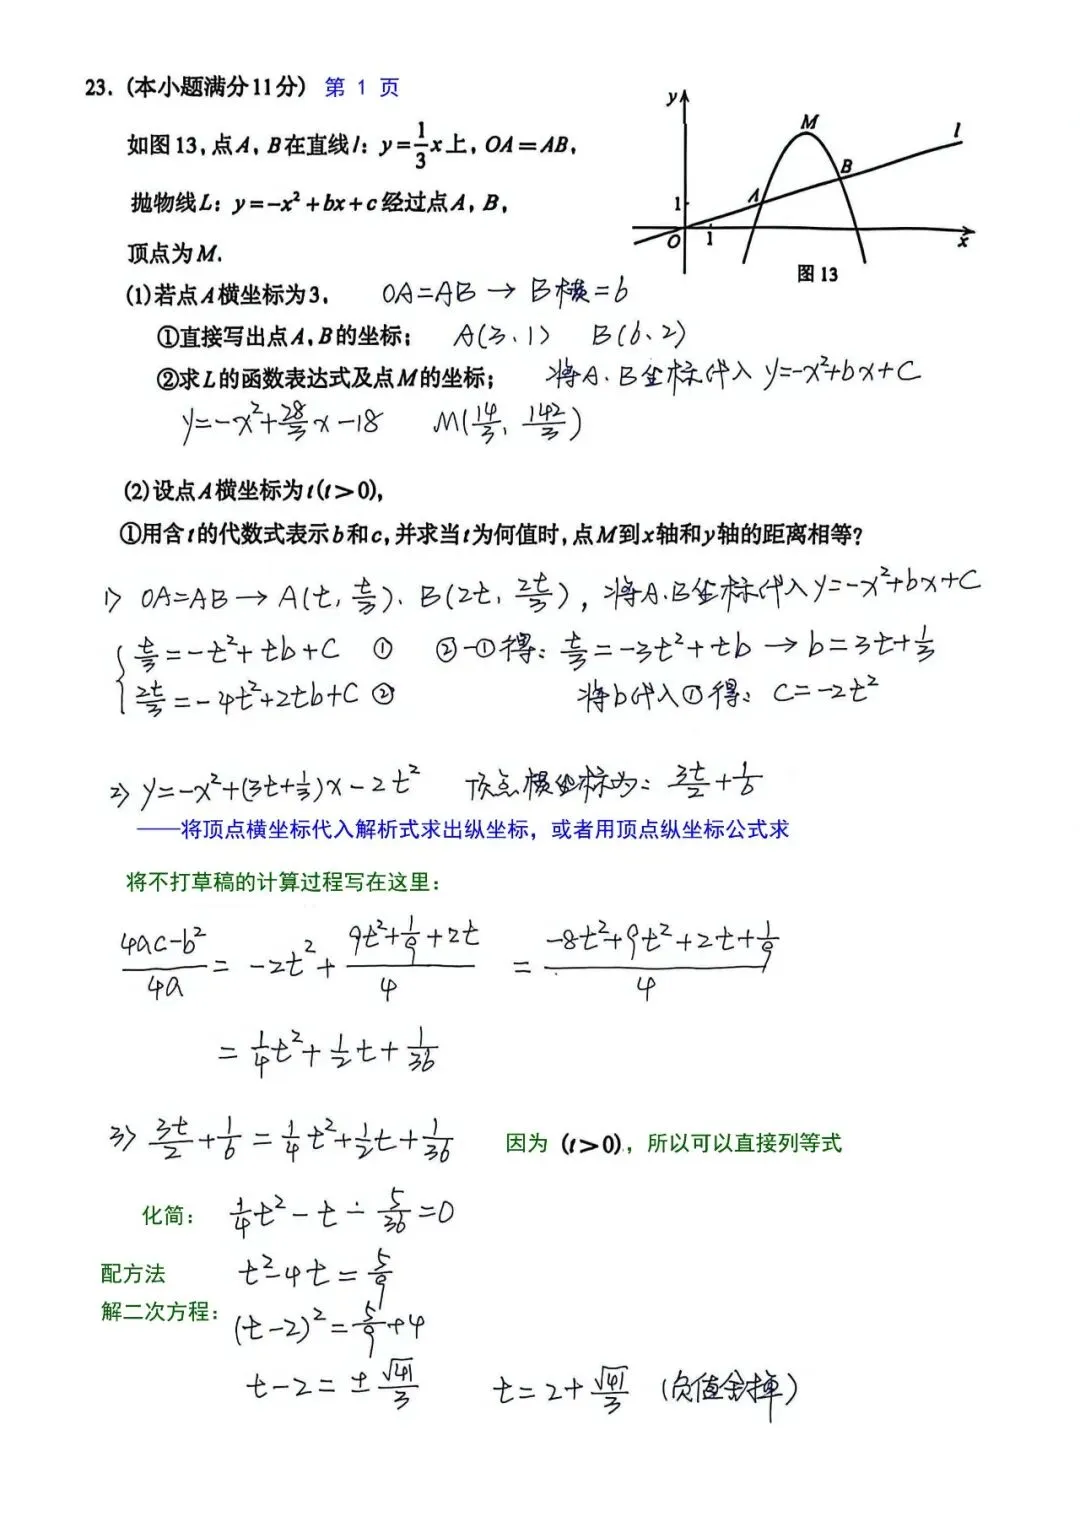 23. (本小题满分11分) 第 1 页
如图 13,点A,B在直线l: y=1/3x上,OA=AB,
抛物线L: y=-x²+bx+c经过点A,B,
顶点为M.
y
M
l
B
A
1
O
1
x
图 13
(1)若点A横坐标为3. OA=AB → B横=6
①直接写出点A,B的坐标; A(3、1) B(6、2)
②求L的函数表达式及点M的坐标; 将A、B坐标代入 y=-x²+bx+C
y=-x²+28/3x-18 M(14/3, 142/3)
(2)设点A横坐标为t(t>0),
①用含t的代数式表示b和c,并求当t为何值时,点M到x轴和y轴的距离相等?
1) OA=AB → A(t, t/3)、B(2t, 2t/3), 将A、B坐标代入 y=-x²+bx+C
t/3=-t²+tb+C ① ②-①得: t/3=-3t²+tb → b=3t+1/3
2t/3=-4t²+2tb+C ② 将b代入①得: C=-2t²
2) y=-x²+(3t+1/3)x-2t² 顶点横坐标为: 3t/2+1/6
——将顶点横坐标代入解析式求出纵坐标, 或者用顶点纵坐标公式求
将不打草稿的计算过程写在这里:
4ac-b²/4a = -2t²+ 9t²+1/9+2t/4 = -8t²+9t²+2t+1/9/4
= 1/4t²+1/2t+1/36
3) 3t/2+1/6=1/4t²+1/2t+1/36 因为 (t>0), 所以可以直接列等式
化简: 1/4t²-t-5/36=0
配方法 t²-4t=5/9
解二次方程: (t-2)²=5/9+4
t-2=±√41/3 t=2+√41/3 (负值舍掉)